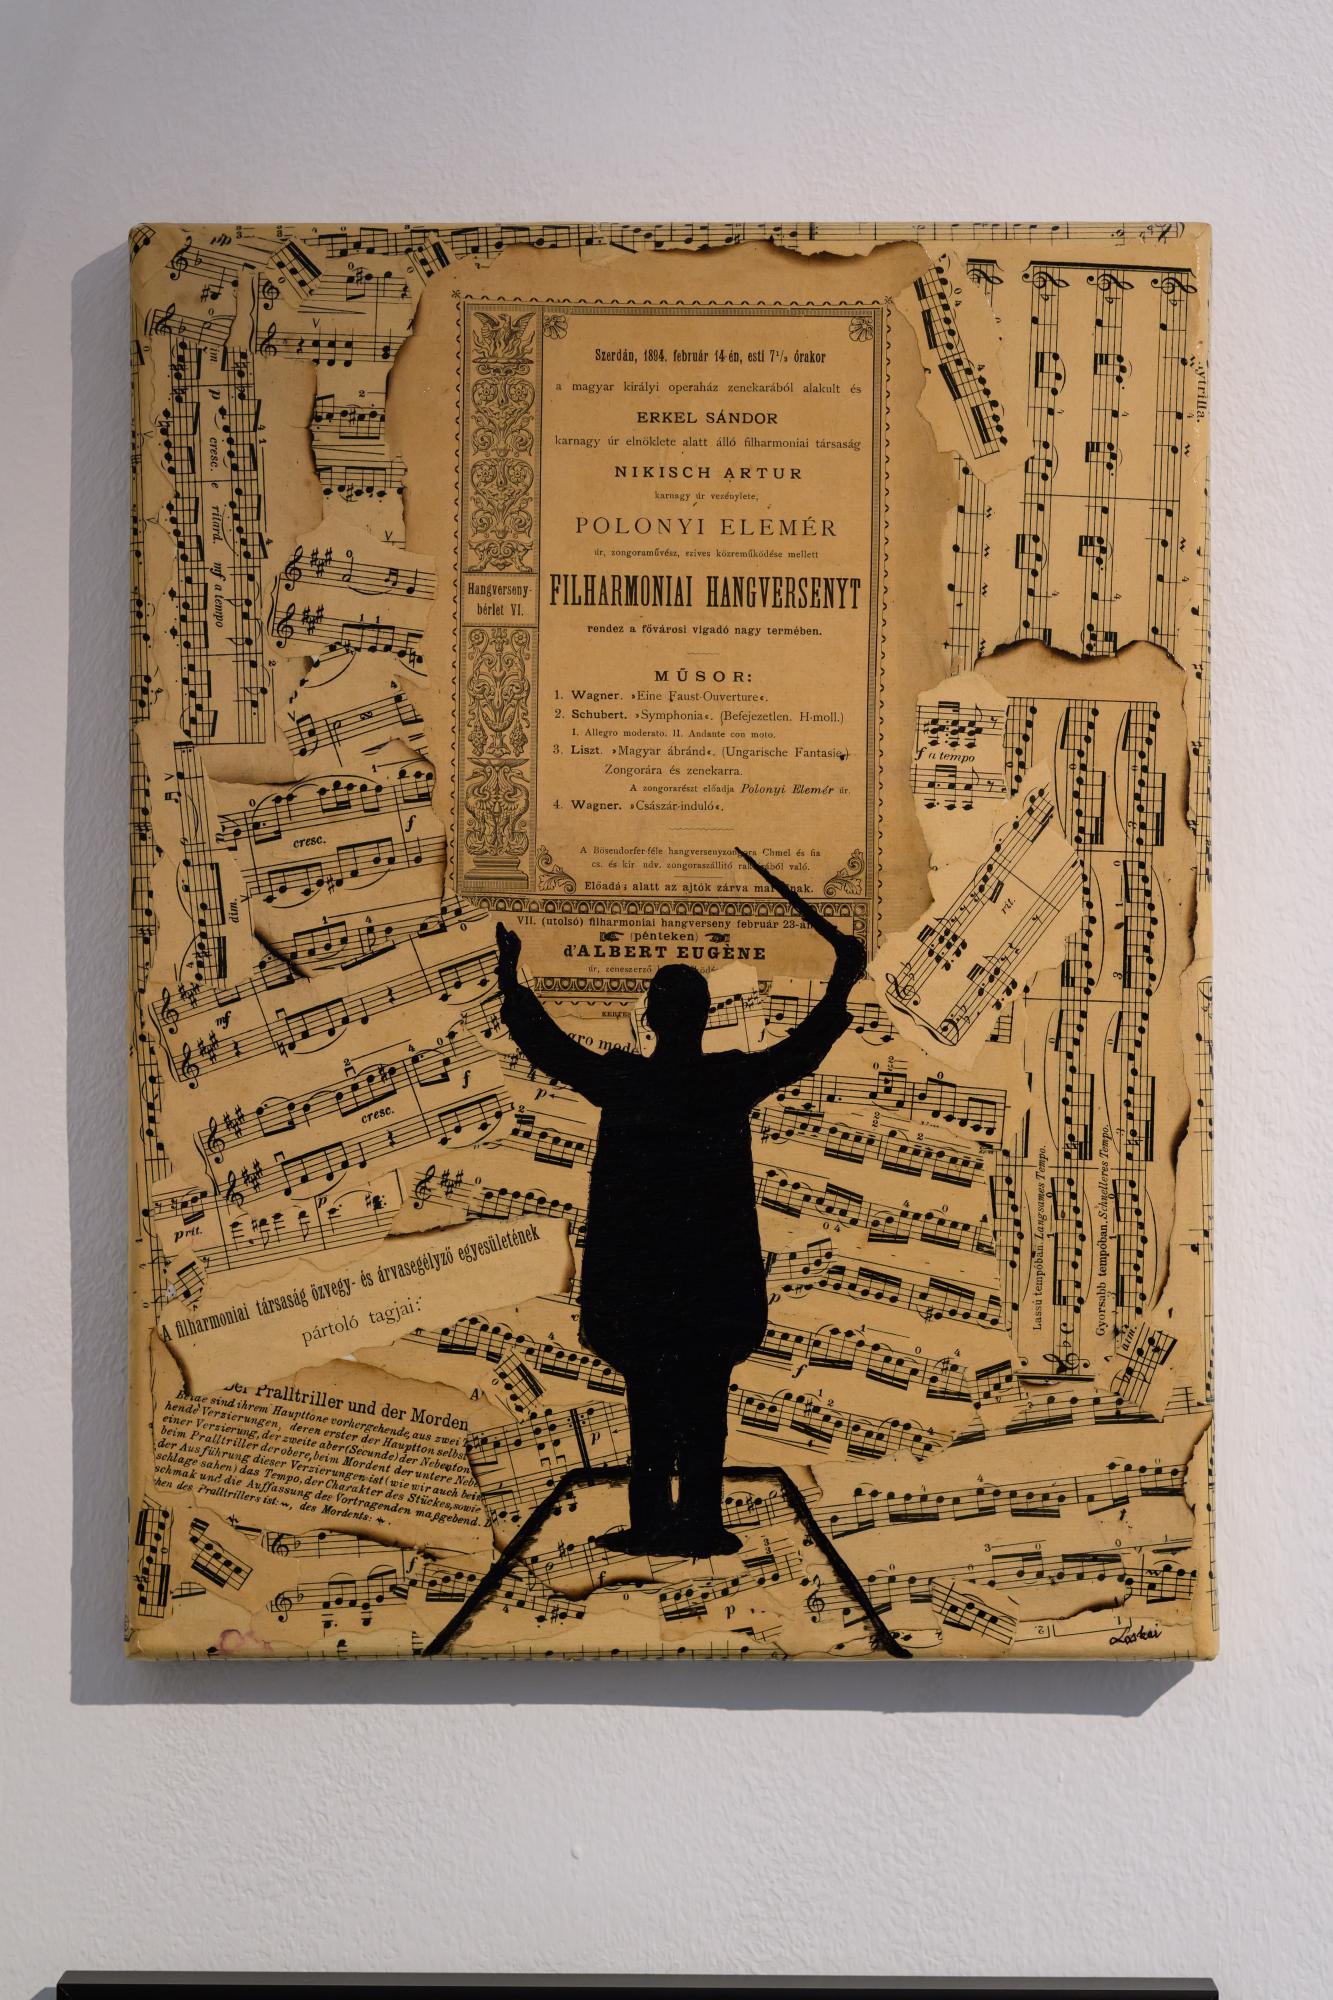 Szerdán, 1894. február 14-én, esti 7 1/2 órakor
a magyar királyi operaház zenekarából alakult és
ERKEL SÁNDOR
karnagy úr elnöklete alatt álló filharmoniai társaság
NIKISCH ARTUR
karnagy úr vezénylete,
POLONYI ELEMÉR
úr, zongoraművész, szives közreműködése mellett
Hangverseny-
bérlet VI.
FILHARMONIAI HANGVERSENYT
rendez a fővárosi vigadó nagy termében.
MŰSOR:
1. Wagner. »Eine Faust-Ouverture«.
2. Schubert. »Symphonia«. (Befejezetlen. H-moll.)
I. Allegro moderato. II. Andante con moto.
3. Liszt. »Magyar ábránd«. (Ungarische Fantasie.)
Zongorára és zenekarra.
A zongorarészt előadja Polonyi Elemér úr.
4. Wagner. »Császár-induló«.
A Bösendorfer-féle hangversenyzongora Chmel és fia
cs. és kir. udv. zongoraszállitó való.
Előadás alatt az ajtók zárva
VII. (utolsó) filharmoniai hangverseny február 23-án
(pénteken)
d'ALBERT EUGÈNE
úr, zeneszerző
p cresc. e ritard. mf a tempo
f a tempo
cresc.
f
dim.
rit.
mf
f
cresc.
p
p
Lassú tempóban. Langsames Tempo.
Gyorsabb tempóban. Schnelleres Tempo.
A filharmoniai társaság özvegy- és árvasegélyző egyesületének
pártoló tagjai:
Der Pralltriller und der Morden
Beide sind ihrem Haupttone vorhergehende, aus zwei
hende Verzierungen, deren erster der Hauptton selbst
einer Verzierung, der zweite aber (Secunde) der Nebenton
beim Pralltriller der obere, beim Mordent der untere
der Ausführung dieser Verzierungen ist (wie wir auch
schlage sahen) das Tempo, der Charakter des Stückes, sowie
schmak und die Auffassung des Vortragenden maßgebend.
hen des Pralltrillers ist: , des Mordents:
p
f
f
p
Laskai